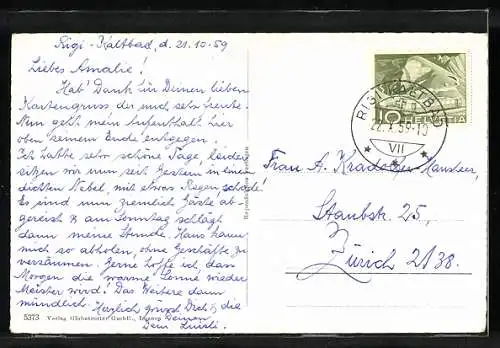 Rigi-Kaltbad, d. 21.10.59
Liebes Amalie!
Hab' Dank für Deinen lieben
Kartengruss der mich sehr freute.
Nun geht mein Aufenthalt hier
oben seinem Ende entgegen.
Ich hatte sehr schöne Tage, leider
sitzen wir nun seit Gestern in einem
dichten Nebel, mit etwas Regen, schade!
Es sind nun ziemlich Gäste ab-
gereist & am Sonntag schlägt
dann meine Stunde. Hans kann
mich so abholen, ohne Geschäfte zu
versäumen. Gerne hoffe ich, dass
Morgen die warme Sonne wieder
Meister wird! Das Weitere dann
mündlich. Herzlich grüsst Dich & die
Deinen
Dein Luisli.
5373 Verlag Globetrotter GmbH., Luzern
RIGI KALTBAD
22.X.59-10
VII
10
HELVETIA
Frau A. Hauser,
Staubstr. 25,
Zürich 2/38.